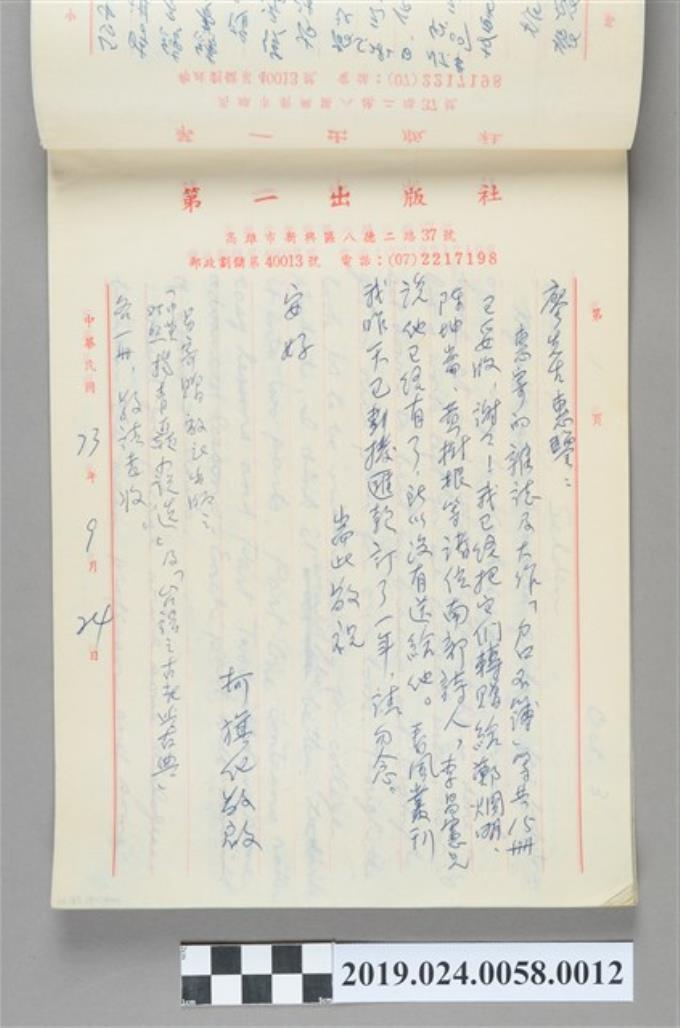 第一出版社
高雄市新興區八德二路37號
郵政劃儲第40013號 電話:(07)2217198
第 頁
廖先生惠鑒:
惠寄的雜誌及大作「戶口不簿」等共15冊
已妥收,謝謝!我已經把它们轉贈給鄭烱明、
陳坤崙、黃樹根等諸位南部詩人,李昌憲兄
説他已經有了,所以沒有送給他。春風叢刊
我昨天已劃撥匯款訂了一年,請勿念。
耑此敬祝
安好
柯旗化敬啟
另寄贈敝社出版之
「 選」及「台語之古老與古典」
各一冊,敬請查收。
中華民國 73 年 9 月 24 日
2019.024.0058.0012